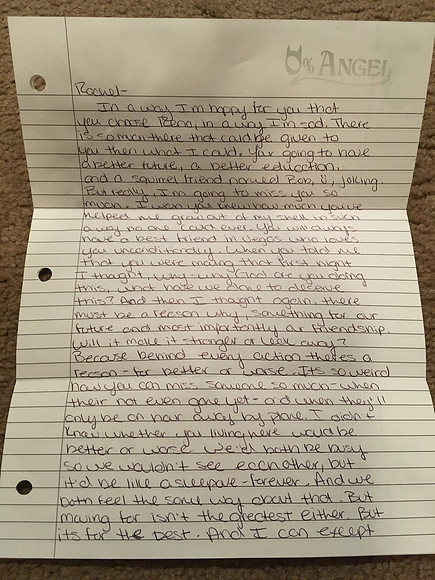 0% ANGEL
Rachel-
In a way I'm happy for you that
you choose Reno, in a way I'm sad. There
is so much there that could be given to
you then what I could. Your going to have
a better future, a better education,
and a squirrel friend named Bob, lol, joking.
But really, I'm going to miss you so
much. I won you know how much you've
helped me grow out of my shell in such
a way no one could ever. You will always
have a best friend in Vegas who loves
you unconditionally. When you told me
that you were moving that first night
I thought, why-why God are you doing
this, what have we done to deserve
this? And then I thought again there
must be a reason why, something for our
future and most importantly our friendship.
Will it make it stronger or leak away?
Because behind every action theres a
reason-for better or worse. Its so weird
how you can miss someone so much-when
their not even gone yet-and when they'll
only be an hour away by plane. I didn't
know whether you living here would be
better or worse. We'd both be busy
so we wouldn't see eachother, but
it'd be like a sleepove-forever. And we
both feel the same way about that. But
moving far isn't the greatest either. But
its for the best. And I can except